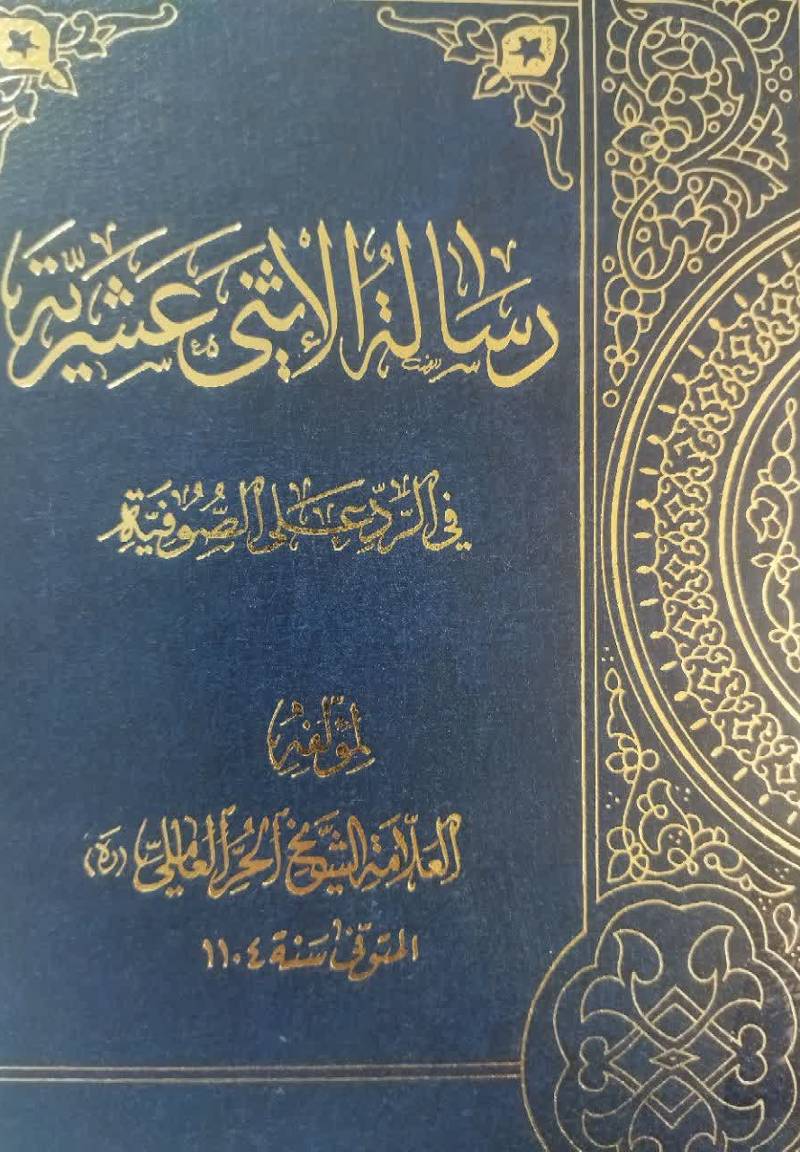 رسالة الإثنى عشرية
في الرد على الصوفية
لمؤلفه
العلامة الشيخ الحر العاملي (ره)
المتوفى سنة ١١٠٤